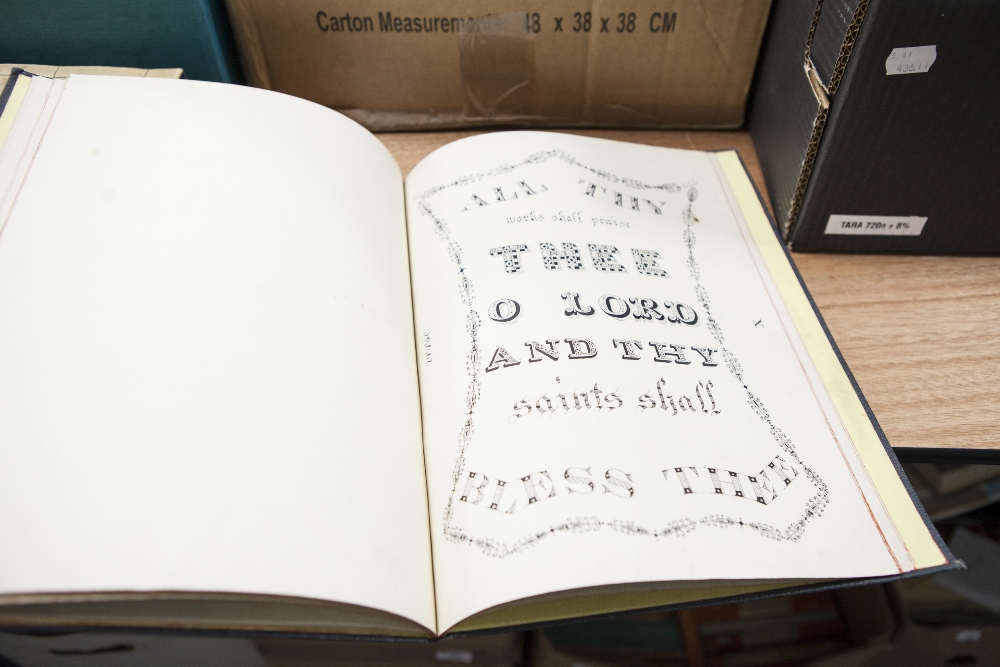 Carton Measurements: 48 x 38 x 38 CM
TARA 720g ± 8%
ALL THY
words shall praise
THEE
O LORD
AND THY
saints shall
BLESS THEE